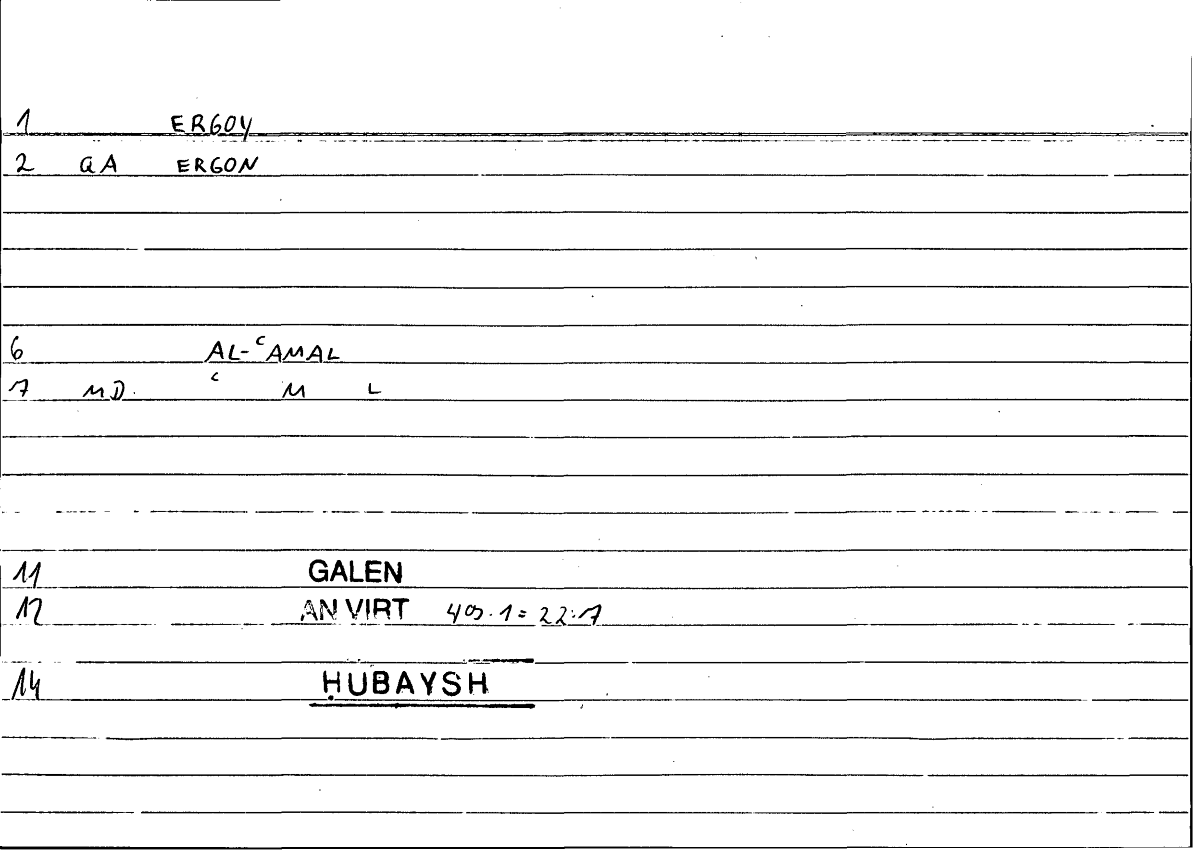 1 ERGOY
2 GA ERGON
6 AL-ʿAMAL
7 MD. ʿ M L
11 GALEN
12 AN VIRT 409.1=22.7
14 ḤUBAYSH